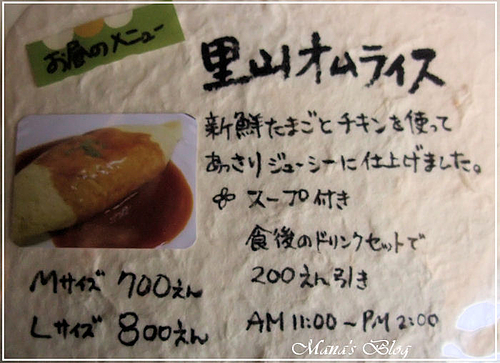 お昼のメニュー
里山オムライス
新鮮たまごとチキンを使って
あっさりジューシーに仕上げました。
スープ付き
食後のドリンクセットで
200えん引き
Mサイズ 700えん
Lサイズ 800えん
AM 11:00～PM 2:00
Mana's Blog